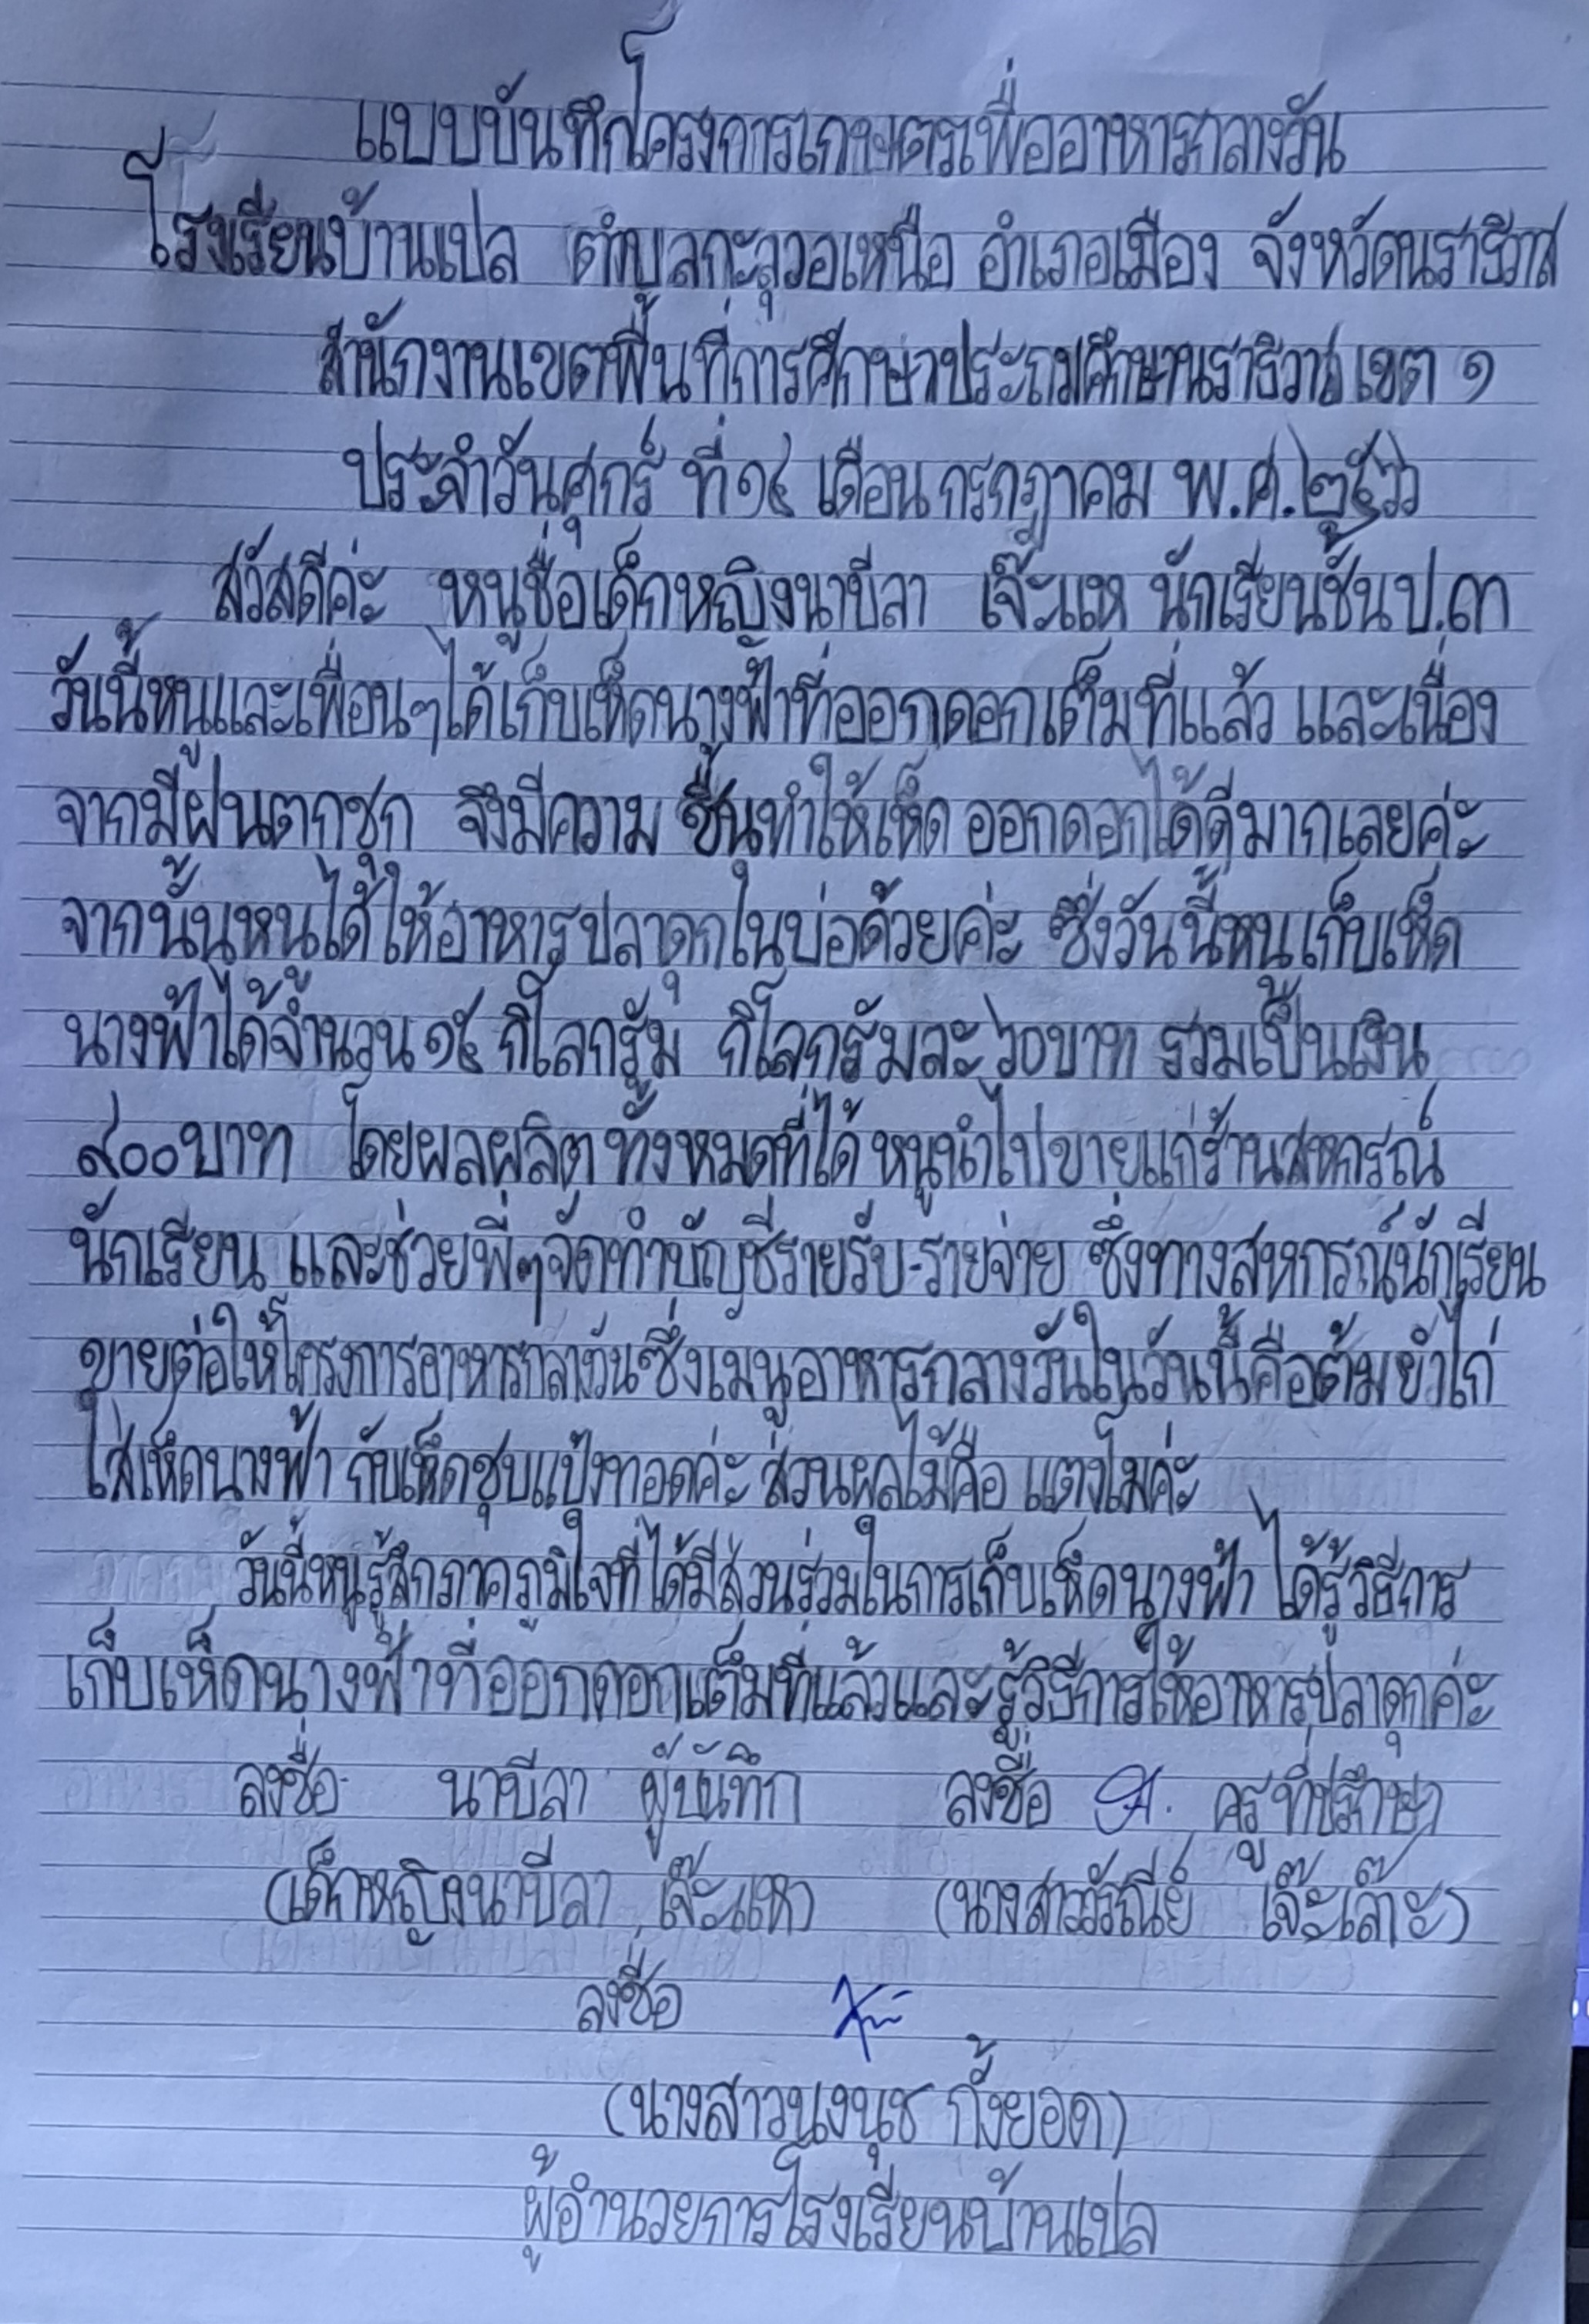 แบบบันทึกโครงการเกษตรเพื่ออาหารกลางวัน
โรงเรียนบ้านเปล ตำบลกะลุวอเหนือ อำเภอเมือง จังหวัดนราธิวาส
สำนักงานเขตพื้นที่การศึกษาประถมศึกษานราธิวาส เขต ๑
ประจำวันศุกร์ ที่ ๑๔ เดือน กรกฎาคม พ.ศ.๒๕๖๖
สวัสดีค่ะ หนูชื่อเด็กหญิงนาบีลา เจ๊ะแห นักเรียนชั้นป.๓
วันนี้หนูและเพื่อนๆได้เก็บเห็ดนางฟ้าที่ออกดอกเต็มที่แล้ว และเนื่อง
จากมีฝนตกชุก จึงมีความ ชื้นทำให้เห็ด ออกดอกได้ดีมากเลยค่ะ
จากนั้นหนูได้ให้อาหารปลาดุกในบ่อด้วยค่ะ ซึ่งวันนี้หนูเก็บเห็ด
นางฟ้าได้จำนวน ๑๕ กิโลกรัม กิโลกรัมละ ๖๐บาท รวมเป็นเงิน
๙๐๐บาท โดยผลผลิต ทั้งหมดที่ได้ หนูนำไปขายแก่ร้านสหกรณ์
นักเรียน และช่วยพี่ๆจัดทำบัญชีรายรับ-รายจ่าย ซึ่งทางสหกรณ์นักเรียน
ขายต่อให้โครงการอาหารกลางวันซึ่งเมนูอาหารกลางวันในวันนี้คือต้มยำไก่
ใส่เห็ดนางฟ้า กับเห็ดชุบแป้งทอดค่ะ ส่วนผลไม้คือ แตงโมค่ะ
วันนี้หนูรู้สึกภาคภูมิใจที่ได้มีส่วนร่วมในการเก็บเห็ดนางฟ้า ได้รู้วิธีการ
เก็บเห็ดนางฟ้าที่ออกดอกเต็มที่แล้วและรู้วิธีการให้อาหารปลาดุกค่ะ
ลงชื่อ นาบีลา ผู้บันทึก ลงชื่อ ครูที่ปรึกษา
(เด็กหญิงนาบีลา เจ๊ะแห) (นางสาววรรณีย์ เจ๊ะเล๊าะ)
ลงชื่อ
(นางสาวนงนุช กั้งยอด)
ผู้อำนวยการโรงเรียนบ้านเปล